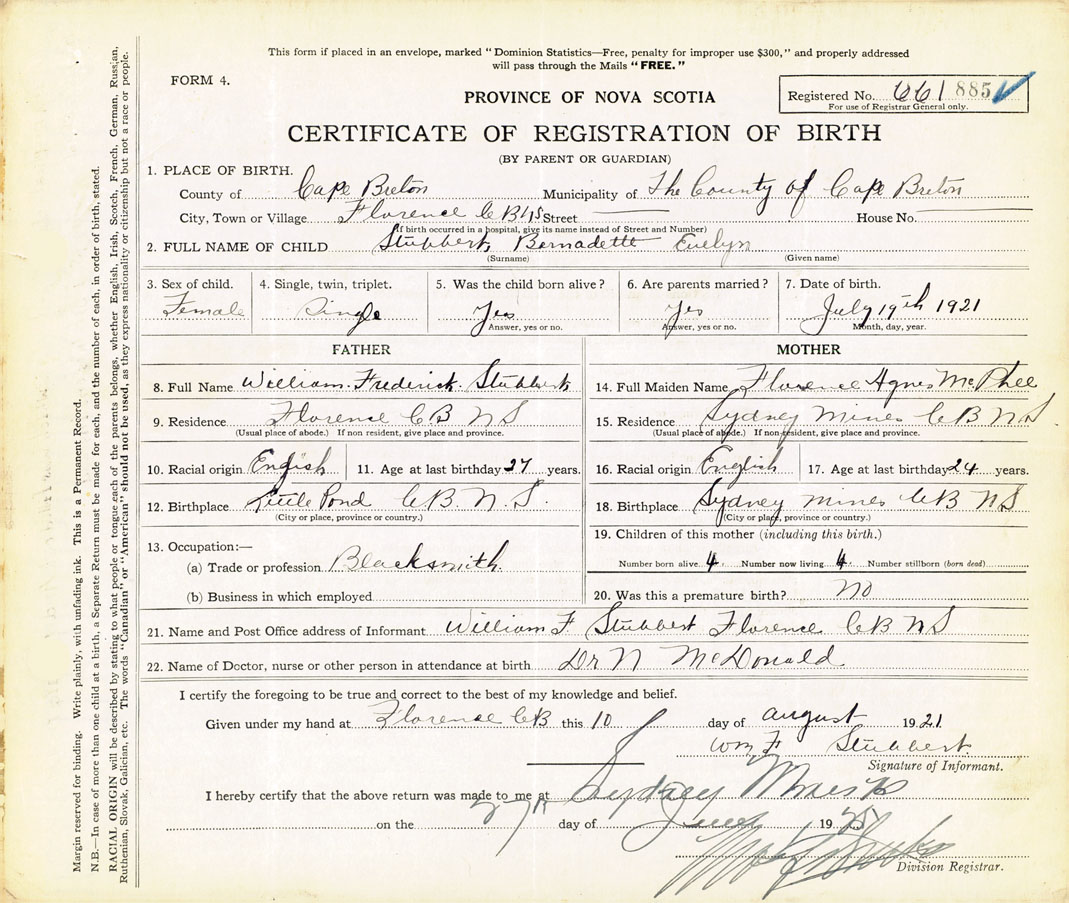 This form if placed in an envelope, marked "Dominion Statistics—Free, penalty for improper use $300," and properly addressed
will pass through the Mails "FREE."
FORM 4.
Registered No. 661 885
For use of Registrar General only.
PROVINCE OF NOVA SCOTIA
CERTIFICATE OF REGISTRATION OF BIRTH
(BY PARENT OR GUARDIAN)
1. PLACE OF BIRTH.
County of Cape Breton Municipality of The County of Cape Breton
City, Town or Village Florence CB NS Street House No.
(If birth occurred in a hospital, give its name instead of Street and Number)
2. FULL NAME OF CHILD Stubbert, Bernadette Evelyn
(Surname) (Given name)
3. Sex of child. 4. Single, twin, triplet. 5. Was the child born alive? 6. Are parents married? 7. Date of birth.
Female Single Yes Yes July 19th 1921
Answer, yes or no. Answer, yes or no. Month, day, year.
FATHER MOTHER
8. Full Name William Frederick Stubbert 14. Full Maiden Name Florence Agnes McPhee
9. Residence Florence CB NS 15. Residence Sydney Mines CB NS
(Usual place of abode.) If non resident, give place and province. (Usual place of abode.) If non-resident, give place and province.
10. Racial origin English 11. Age at last birthday 27 years. 16. Racial origin English 17. Age at last birthday 24 years.
12. Birthplace Little Pond CB. N. S 18. Birthplace Sydney mines CB NS
(City or place, province or country.) (City or place, province or country.)
13. Occupation:— 19. Children of this mother (including this birth.)
(a) Trade or profession Blacksmith Number born alive 4 Number now living 4 Number stillborn (born dead)
(b) Business in which employed 20. Was this a premature birth? No
21. Name and Post Office address of Informant William F. Stubbert Florence CB NS
22. Name of Doctor, nurse or other person in attendance at birth Dr N McDonald
I certify the foregoing to be true and correct to the best of my knowledge and belief.
Given under my hand at Florence CB this 10 day of august 1921
Wm F Stubbert
Signature of Informant.
I hereby certify that the above return was made to me at Sydney Mines
on the 27th day of 19
Division Registrar.
Margin reserved for binding. Write plainly, with unfading ink. This is a Permanent Record.
N.B.—In case of more than one child at a birth, a Separate Return must be made for each, and the number of each, in order of birth, stated.
RACIAL ORIGIN will be described by stating to what people or tongue each of the parents belongs, whether English, Irish, Scotch, French, German, Russian,
Ruthenian, Slovak, Galician, etc. The words "Canadian" or "American" should not be used, as they express nationality or citizenship but not a race or people.